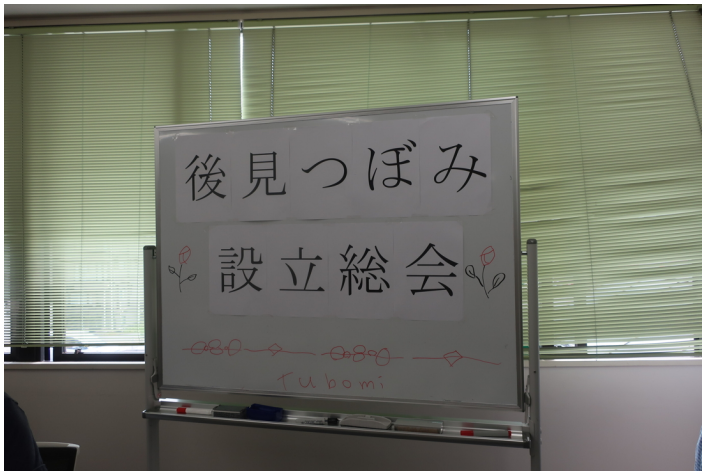 後見つぼみ
設立総会
Tubomi